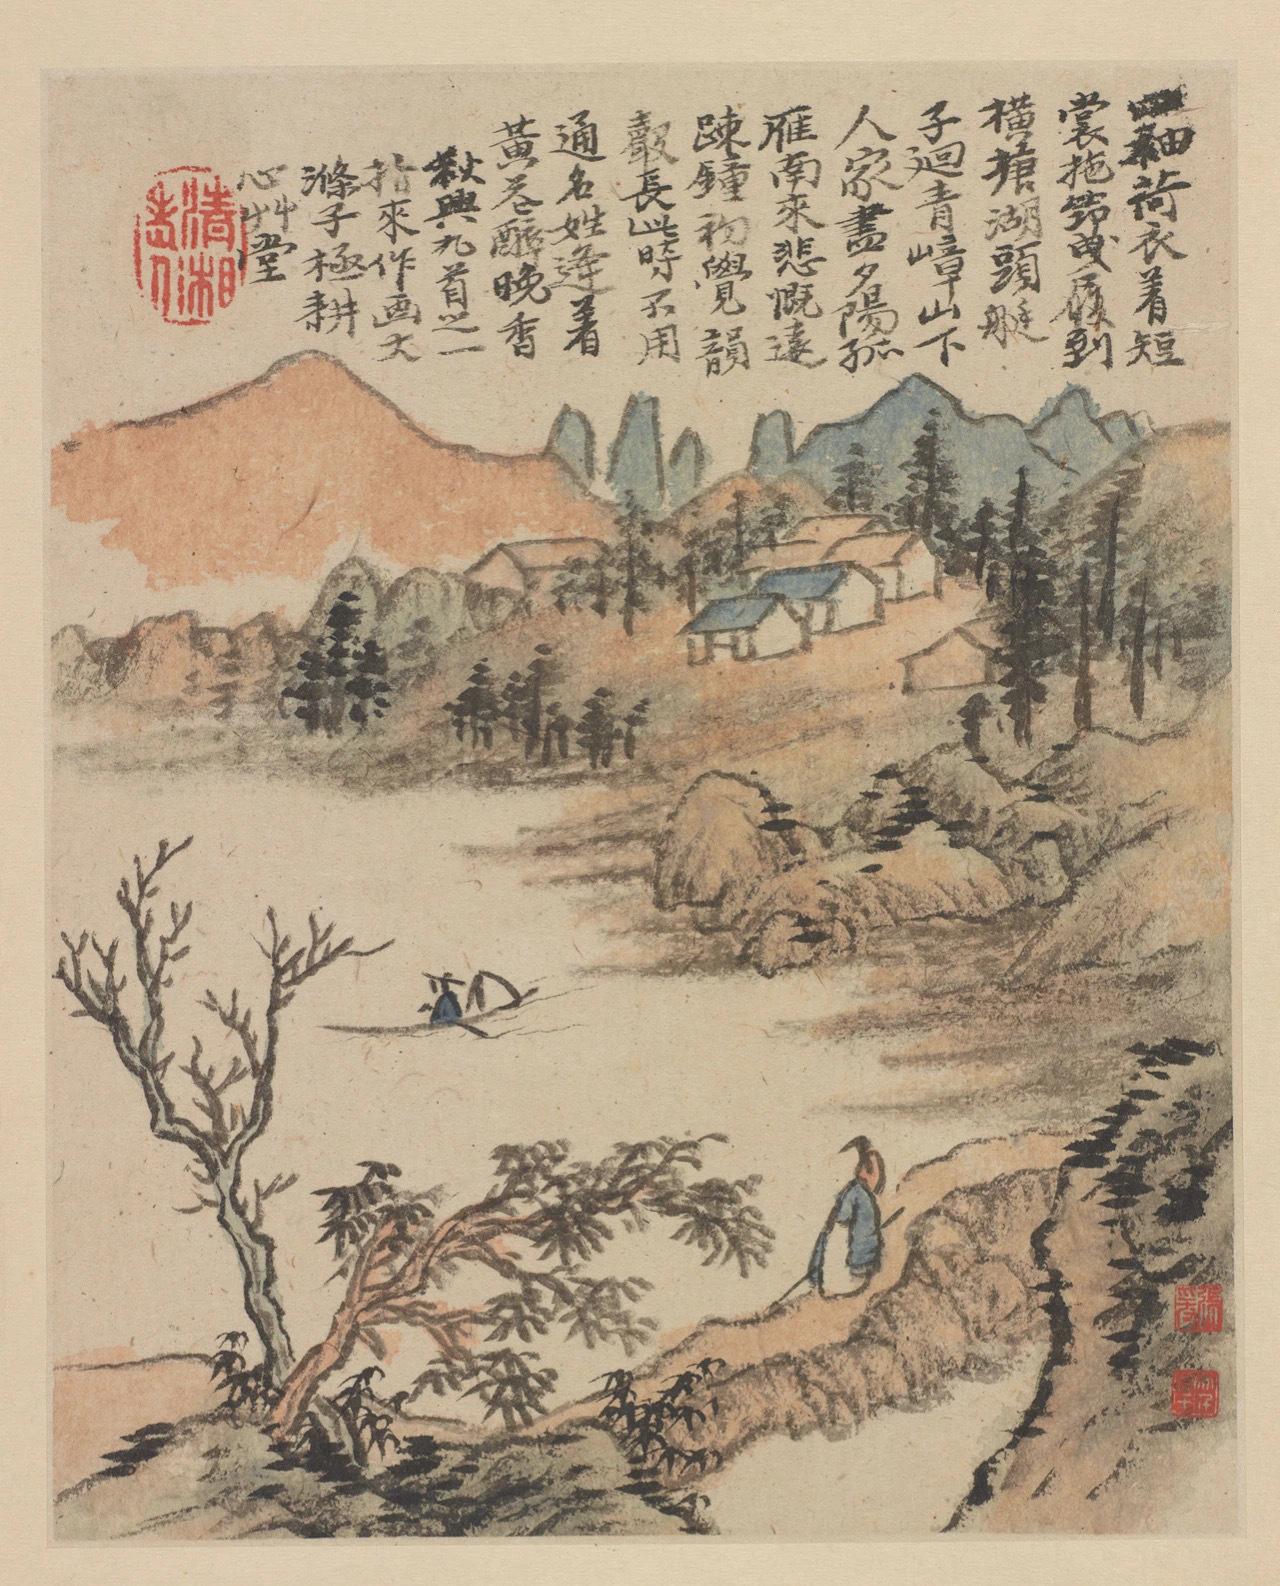 袖荷衣着短
裳拖筇曳履到
橫塘湖頭艇
子迴青嶂山下
人家盡夕陽孤
雁南來悲慨遠
踈鐘初覺韻
聲長此時不用
通名姓逢着
黃花醉晚香
秋興九首之一
拈來作画大
滌子極耕
心艸堂
清湘老人